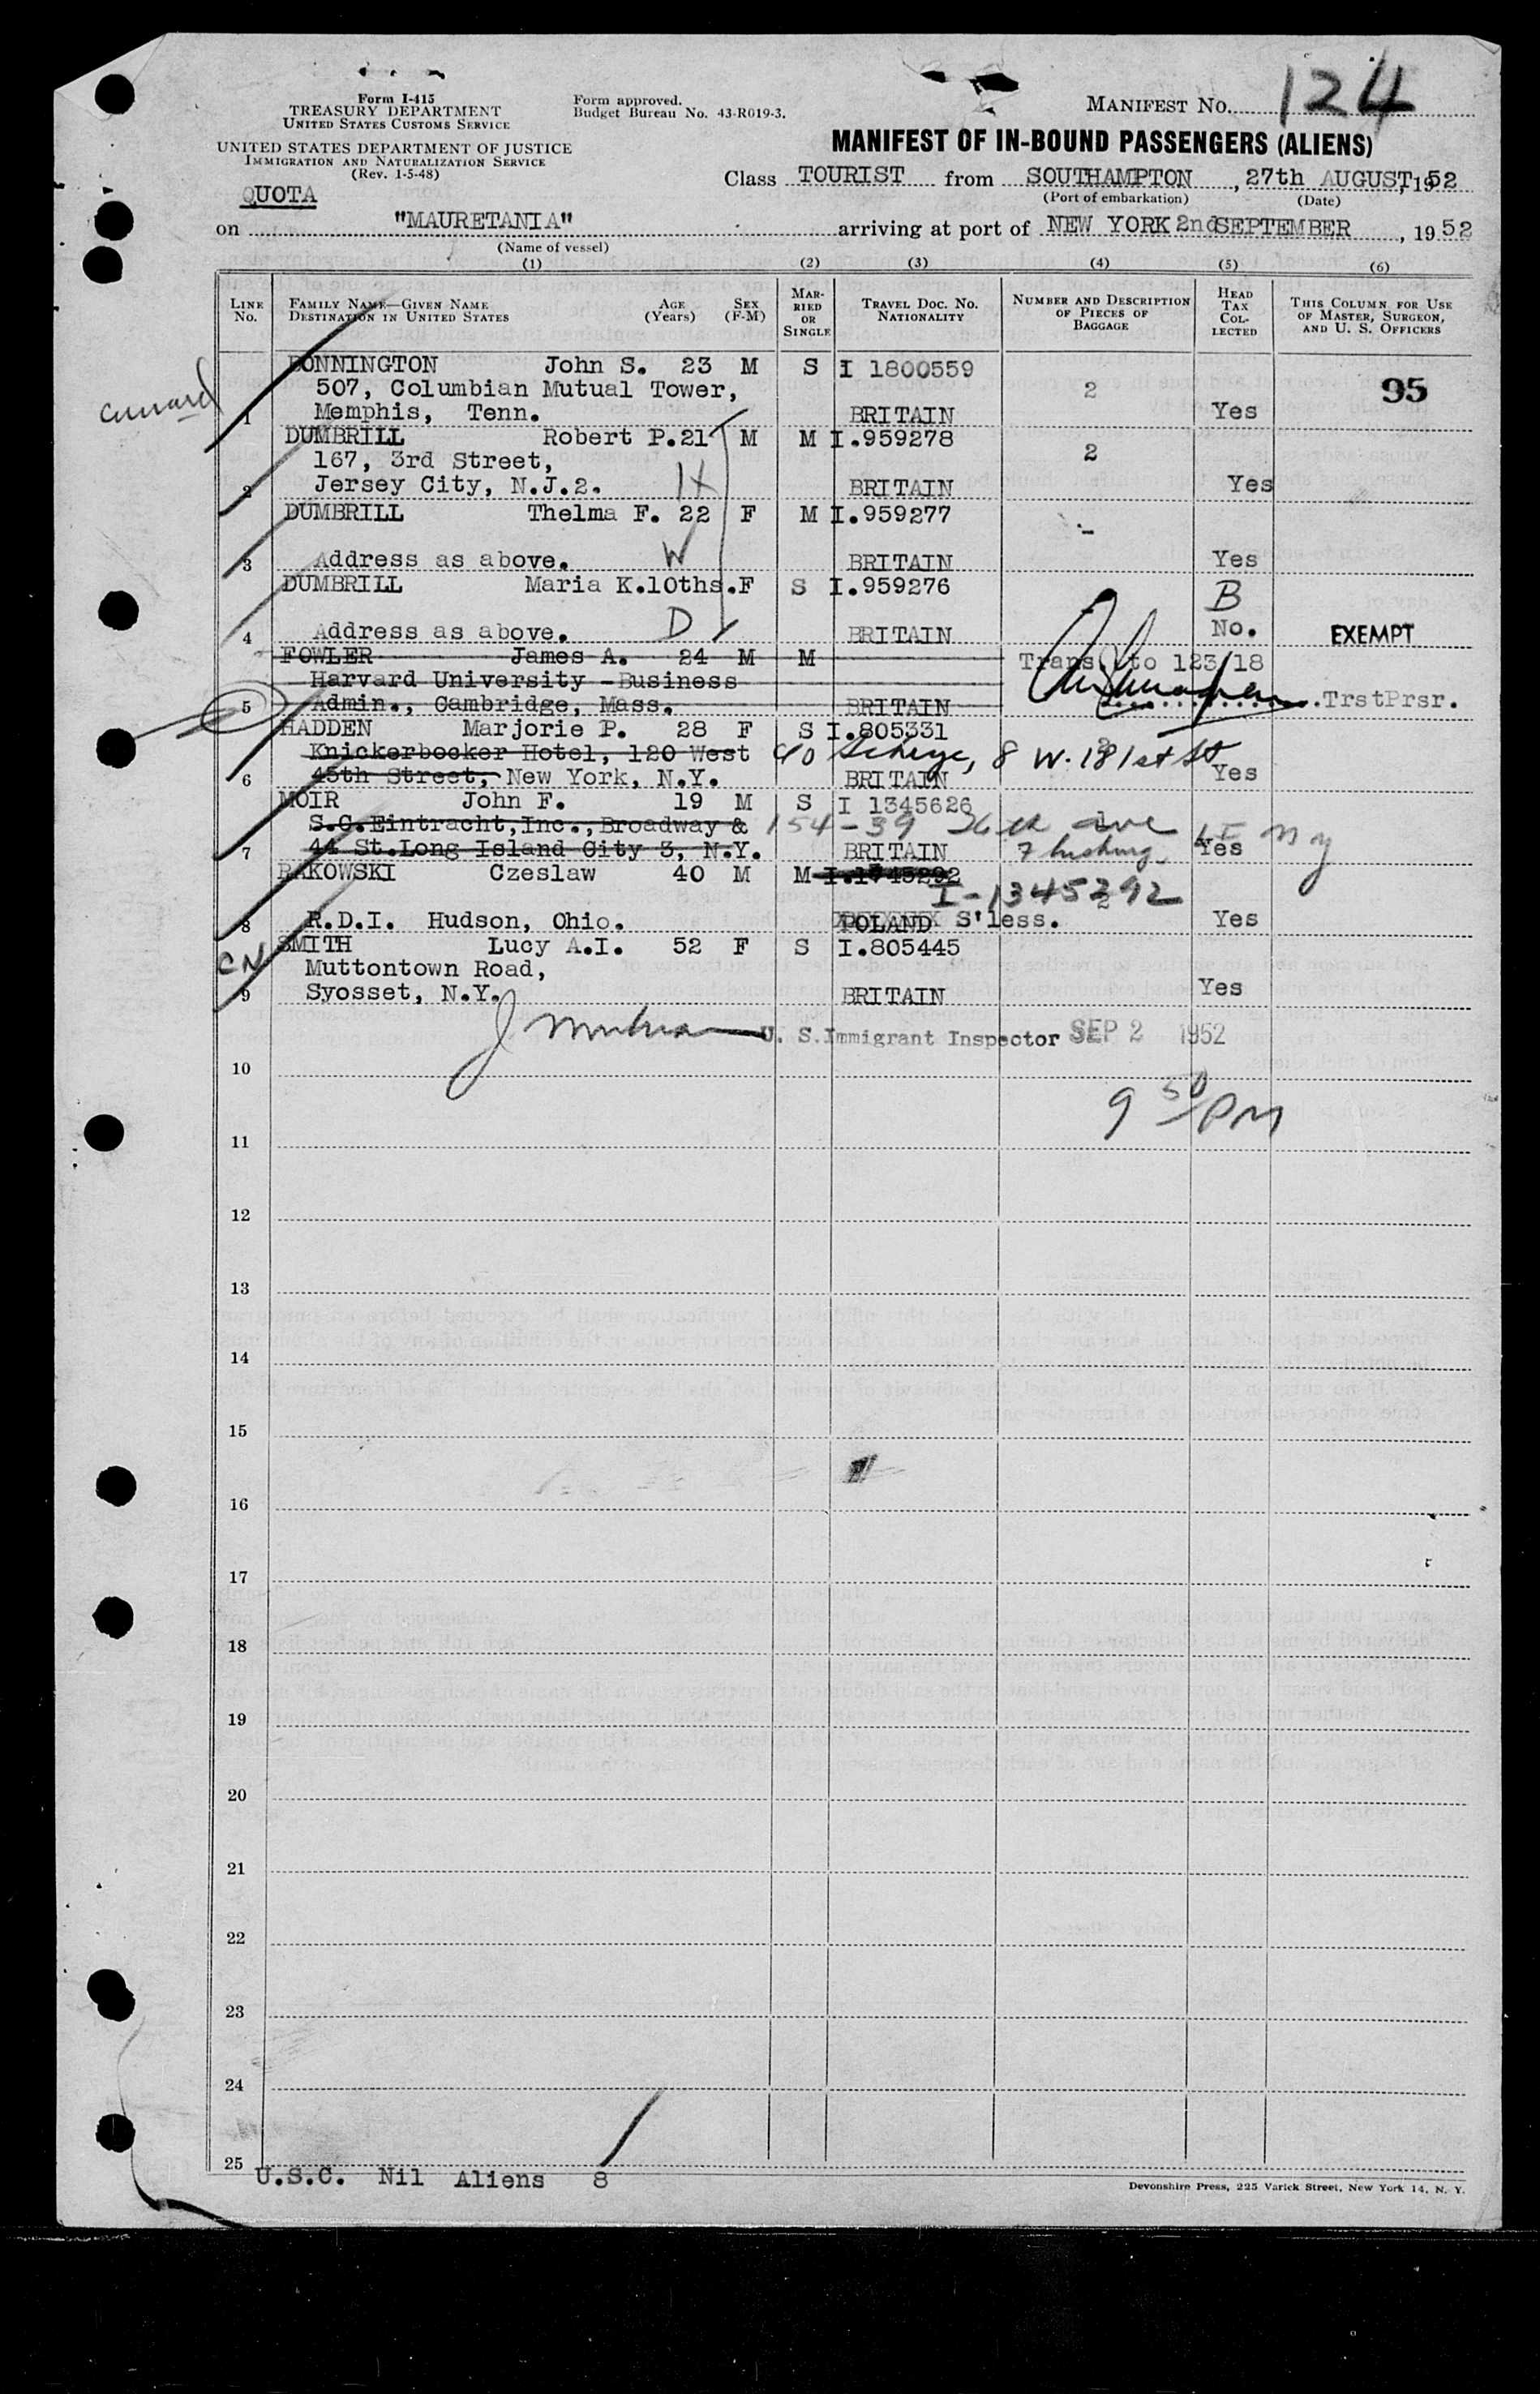 Form I-415
TREASURY DEPARTMENT
UNITED STATES CUSTOMS SERVICE
UNITED STATES DEPARTMENT OF JUSTICE
IMMIGRATION AND NATURALIZATION SERVICE
(Rev. 1-5-48)
Form approved.
Budget Bureau No. 43-R019-3.
MANIFEST NO. 124
MANIFEST OF IN-BOUND PASSENGERS (ALIENS)
QUOTA
Class TOURIST from SOUTHAMPTON, 27th AUGUST, 1952
(Port of embarkation) (Date)
on "MAURETANIA" arriving at port of NEW YORK 2nd SEPTEMBER, 1952
(Name of vessel)
(1) (2) (3) (4) (5) (6)
LINE No. FAMILY NAME—GIVEN NAME DESTINATION IN UNITED STATES AGE (Years) SEX (F-M) MARRIED OR SINGLE TRAVEL DOC. NO. NATIONALITY NUMBER AND DESCRIPTION OF PIECES OF BAGGAGE HEAD TAX COLLECTED THIS COLUMN FOR USE OF MASTER, SURGEON, AND U. S. OFFICERS
BONNINGTON John S. 23 M S I 1800559
507, Columbian Mutual Tower, 2 95
cunard
1 Memphis, Tenn. BRITAIN Yes
DUMBRILL Robert P. 21 M M I.959278
167, 3rd Street, 2
2 Jersey City, N.J.2. H BRITAIN Yes
DUMBRILL Thelma F. 22 F M I.959277
-
3 Address as above. W BRITAIN Yes
DUMBRILL Maria K. 10ths. F S I.959276
- B
4 Address as above. D BRITAIN No. EXEMPT
FOWLER James A. 24 M M Trans to 123/18
Harvard University - Business
5 Admin., Cambridge, Mass. BRITAIN TrstPrsr.
HADDEN Marjorie P. 28 F S I.805331
Knickerbocker Hotel, 120 West c/o 8 W. 181st St
6 45th Street, New York, N.Y. BRITAIN Yes
MOIR John F. 19 M S I 1345626
S.C.Eintracht,Inc.,Broadway & 154-39 Ave
7 44 St.Long Island City 3, N.Y. BRITAIN Flushing, Yes LI NY
RAKOWSKI Czeslaw 40 M M I.1745292
I-1345292
8 R.D.I. Hudson, Ohio. POLAND S'less. 2 Yes
SMITH Lucy A.I. 52 F S I.805445
CN Muttontown Road,
9 Syosset, N.Y. BRITAIN Yes
U. S. Immigrant Inspector SEP 2 1952
10
9 50 PM
11
12
13
14
15
16
17
18
19
20
21
22
23
24
25
U.S.C. Nil Aliens 8
Devonshire Press, 225 Varick Street, New York 14, N. Y.